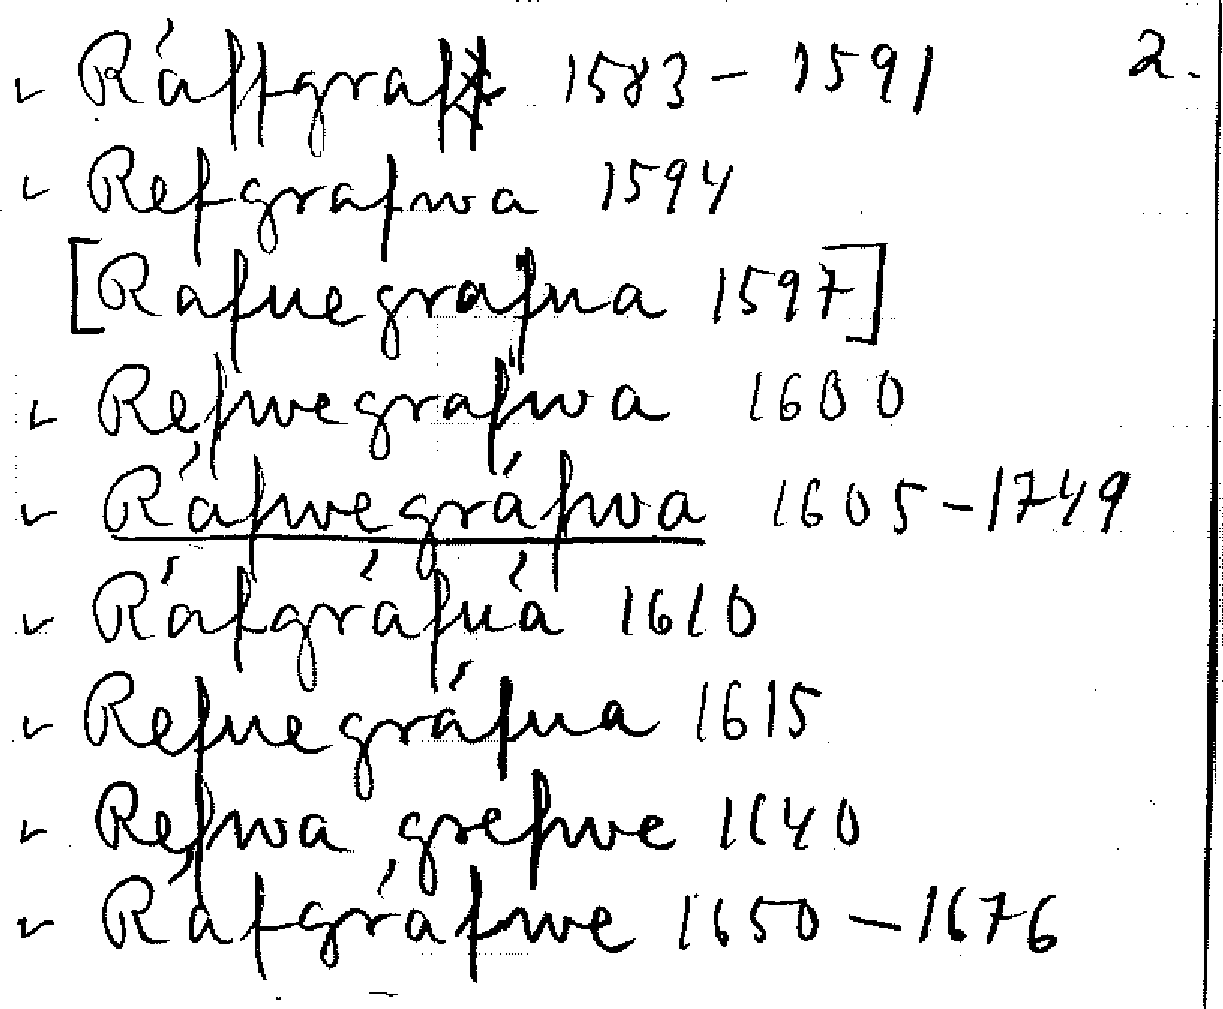 Ráffgraff 1583-1591 2.
Refgrafwa 1594
[Rafuegrafua 1597]
Refwegrafwa 1600
Ráfwegráfwa 1605-1749
Ráfgráfuá 1610
Refuegráfua 1615
Refwa grefwe 1640
Ráfgráfwe 1650-1676